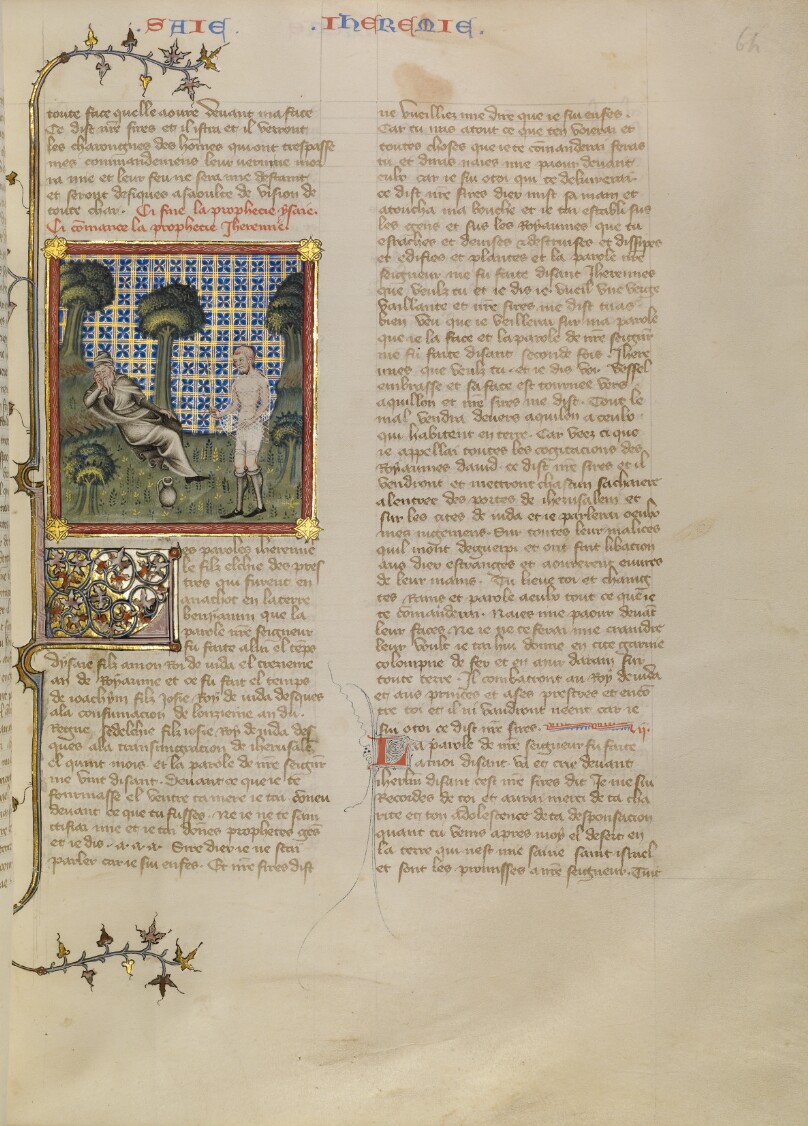 SAIE
IHEREMIE
64
toute face quelle aoure deuant ma face
Ce dist nre sires et il istra et il verront
les charoingnes des homes qui ont trespasse
mes commandemens leur vermine mor
ra mie et leur feu ne sera mie destaint
et seront desiques a saoulte de vision de
toute char. Ci fine la prophecie ysaie.
Ci comance la prophecie Jheremie
es paroles iheremie
le filz elchie des pres
tres qui furent en
anathot en la terre
beniamin que la
parole nre seigneur
fu faite a lui el teps
dysaie filz amon Roy de iuda el trezieme
an de Royaume et ce fu fait el temps
de ioachym filz Josie Roy de iuda desques
a la consumacion de lonzieme an du
Regne sedelchie filz iosie Roy de iuda des
ques a la transmigracion de iherusale
el quint mois. et la parole de nre seignr
me vint disant. Deuant ce que ie te
fourmasse el ventre ta mere ie tai coneu
deuant ce que tu fusses. Ne ie ne te sain
ctifiai mie et ie tai dones prophetes ges
et ie dis. a. a. a. Sire dier ie ne scai
parler car ie sui enfes. Et nre sires dist
ne vueilliez mie dire que ie sui enfes.
Car tu iras a tout ce que ten voierai et
toutes choses que ie te comanderai feras
tu et diras naies mie paour deuant
eulz car ie sui o toi qui te deliuerai
ce dist nre sires dier mist sa main et
atoucha ma bouche et ie tai establi sus
les gens et sus les Royaumes que tu
esraches et demises et destruises et dissipes
et edifies et plantes et la parole nre
seigneur me fu faite disant Jheremies
que veulz tu. et ie dis ie vueil vne verge
vaillante et nre sires me dist tu as
bien veu que ie veillerai sur ma parole
que ie la face et la parole de nre seignr
me fu faite disant seconde fois. Jhere
mies que veulz tu. et ie dis voi vessel
embrasse et sa face est tournee vers
aquillon et nre sires me dist. Tout le
mal vendra deuers aquilon a ceulz
qui habitent en terre. Car veez ci que
ie appellai toutes les cogitacions des
Royaumes dauid. ce dist nre sires et il
vendront et mettront chascun sa chaiere
a lentree des portes de iherusalem et
sur les cites de iuda et ie parlerai o eulz
mes iugemens. Sur toutes leur malices
quil mont deguerpi et ont fait libation
aus dier estranges et aourerent euures
de leur mains. Tu lieue toi et chaing
tes Rains et parole a eulz tout ce que ie
te comanderai. Naies mie paour deuat
leur faces. Ne ie ne te ferai mie craindre
leur voult ie tai hui donne en cite garnie
colompne de fer et en mur darain sur
toute terre. Il combatront au Roy de iuda
et aus princes et a ses prestres et enco
tre toi et il ni vaudront neent car ie
sui o toi ce dist nre sires. ij.
La parole de nre seigneur fu faite
a moi disant. va et crie deuant
iherlm disant cest nre sires dit Je me sui
Recordes de toi et aurai merci de ta cha
rite en ton adolescence de ta desponsacion
quant tu venis apres moy el desert en
la terre qui nest mie saine saint israel
et sont les promisses a nre seigneur. Tuit